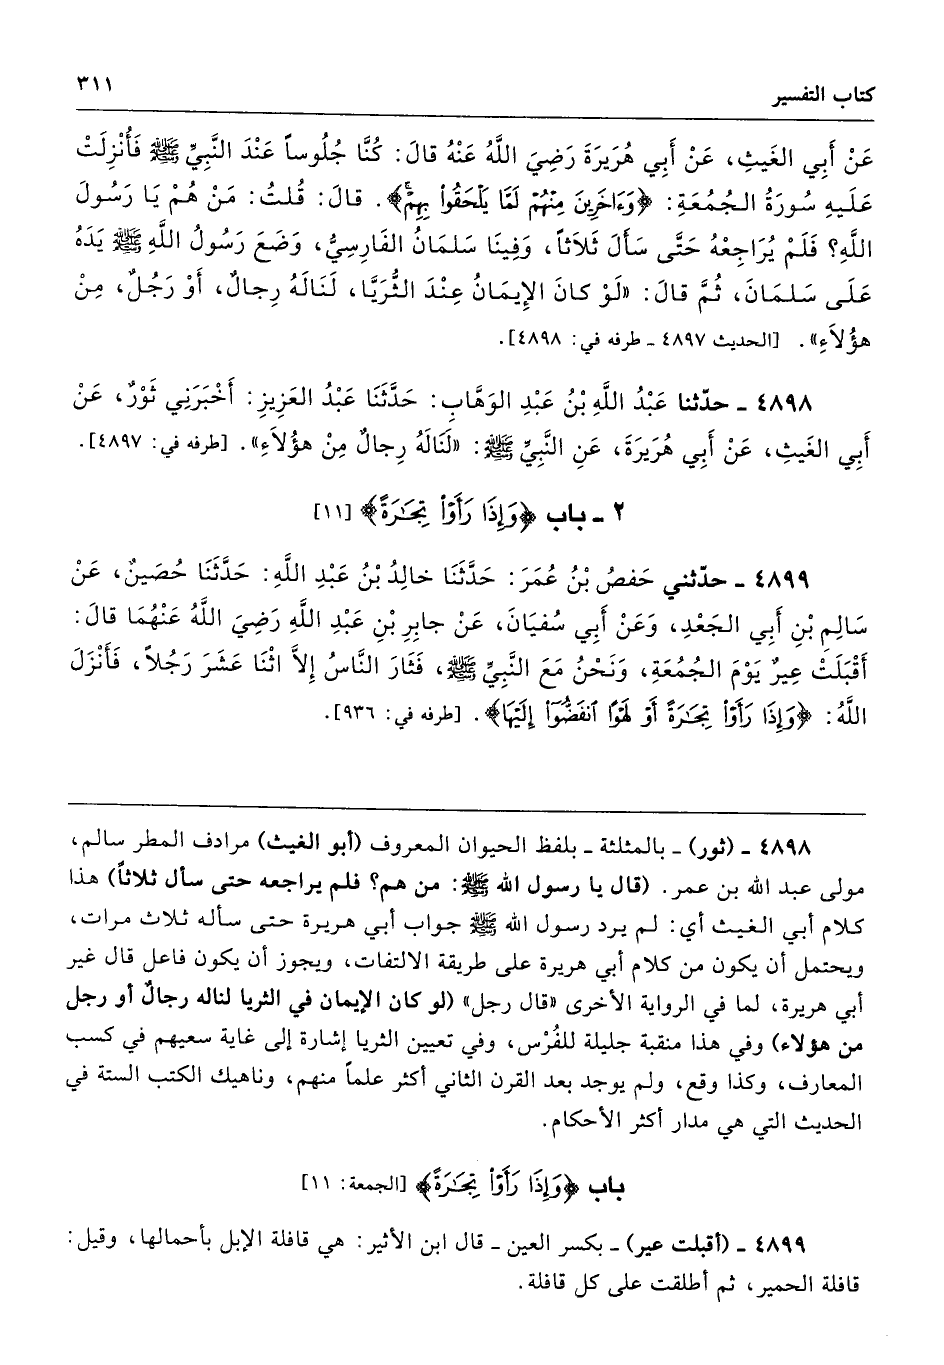 ٣١١
كتاب التفسير
عَنْ أَبِي الغَيثِ، عَنْ أَبِي هُرَيرَةَ رَضِيَ اللَّهُ عَنْهُ قالَ: كُنَّا جُلُوساً عَنْدَ النَّبِيِّ ﷺ فَأُنْزِلَتْ
عَلَيهِ سُورَةُ الجُمُعَةِ: ﴿وَءَاخَرِينَ مِنْهُمْ لَمَّا يَلْحَقُوا۟ بِهِمْ﴾. قالَ: قُلتُ: مَنْ هُمْ يَا رَسُولَ
اللَّهِ؟ فَلَمْ يُرَاجِعْهُ حَتَّى سَأَلَ ثَلَاثاً، وَفِينَا سَلمَانُ الفَارِسِيُّ، وَضَعَ رَسُولُ اللَّهِ ﷺ يَدَهُ
عَلَى سَلمَانَ، ثُمَّ قالَ: «لَوْ كانَ الإِيمَانُ عِنْدَ الثُّرَيَّا، لَنَالَهُ رِجالٌ، أَوْ رَجُلٌ، مِنْ
هؤُلَاءِ». [الحديث ٤٨٩٧ ـ طرفه في: ٤٨٩٨].
٤٨٩٨ ـ حدّثنا عَبْدُ اللَّهِ بْنُ عَبْدِ الوَهَّابِ: حَدَّثَنَا عَبْدُ العَزِيزِ: أَخْبَرَنِي ثَوْرٌ، عَنْ
أَبِي الغَيثِ، عَنْ أَبِي هُرَيرَةَ، عَنِ النَّبِيِّ ﷺ: «لَنَالَهُ رِجالٌ مِنْ هؤُلَاءِ». [طرفه في: ٤٨٩٧].
٢ ـ باب ﴿وَإِذَا رَأَوْا۟ تِجَـٰرَةً﴾ [١١]
٤٨٩٩ ـ حدّثني حَفصُ بْنُ عُمَرَ: حَدَّثَنَا خالِدُ بْنُ عَبْدِ اللَّهِ: حَدَّثَنَا حُصَينٌ، عَنْ
سَالِمِ بْنِ أَبِي الجَعْدِ، وَعَنْ أَبِي سُفيَانَ، عَنْ جابِرِ بْنِ عَبْدِ اللَّهِ رَضِيَ اللَّهُ عَنْهُمَا قالَ:
أَقْبَلَتْ عِيرٌ يَوْمَ الجُمُعَةِ، وَنَحْنُ مَعَ النَّبِيِّ ﷺ، فَثَارَ النَّاسُ إِلاَّ اثْنَا عَشَرَ رَجُلاً، فَأَنْزَلَ
اللَّهُ: ﴿وَإِذَا رَأَوْا۟ تِجَـٰرَةً أَوْ لَهْوًا ٱنفَضُّوٓا۟ إِلَيْهَا﴾. [طرفه في: ٩٣٦].
٤٨٩٨ ـ (ثور) ـ بالمثلثة ـ بلفظ الحيوان المعروف (أبو الغيث) مرادف المطر سالم،
مولى عبد الله بن عمر. (قال يا رسول الله ﷺ: من هم؟ فلم يراجعه حتى سأل ثلاثاً) هذا
كلام أبي الغيث أي: لم يرد رسول الله ﷺ جواب أبي هريرة حتى سأله ثلاث مرات،
ويحتمل أن يكون من كلام أبي هريرة على طريقة الالتفات، ويجوز أن يكون فاعل قال غير
أبي هريرة، لما في الرواية الأخرى «قال رجل» (لو كان الإيمان في الثريا لناله رجالٌ أو رجل
من هؤلاء) وفي هذا منقبة جليلة للفُرْس، وفي تعيين الثريا إشارة إلى غاية سعيهم في كسب
المعارف، وكذا وقع، ولم يوجد بعد القرن الثاني أكثر علماً منهم، وناهيك الكتب الستة في
الحديث التي هي مدار أكثر الأحكام.
باب ﴿وَإِذَا رَأَوْا۟ تِجَـٰرَةً﴾ [الجمعة: ١١]
٤٨٩٩ ـ (أقبلت عير) ـ بكسر العين ـ قال ابن الأثير: هي قافلة الإبل بأحمالها، وقيل:
قافلة الحمير، ثم أطلقت على كل قافلة.